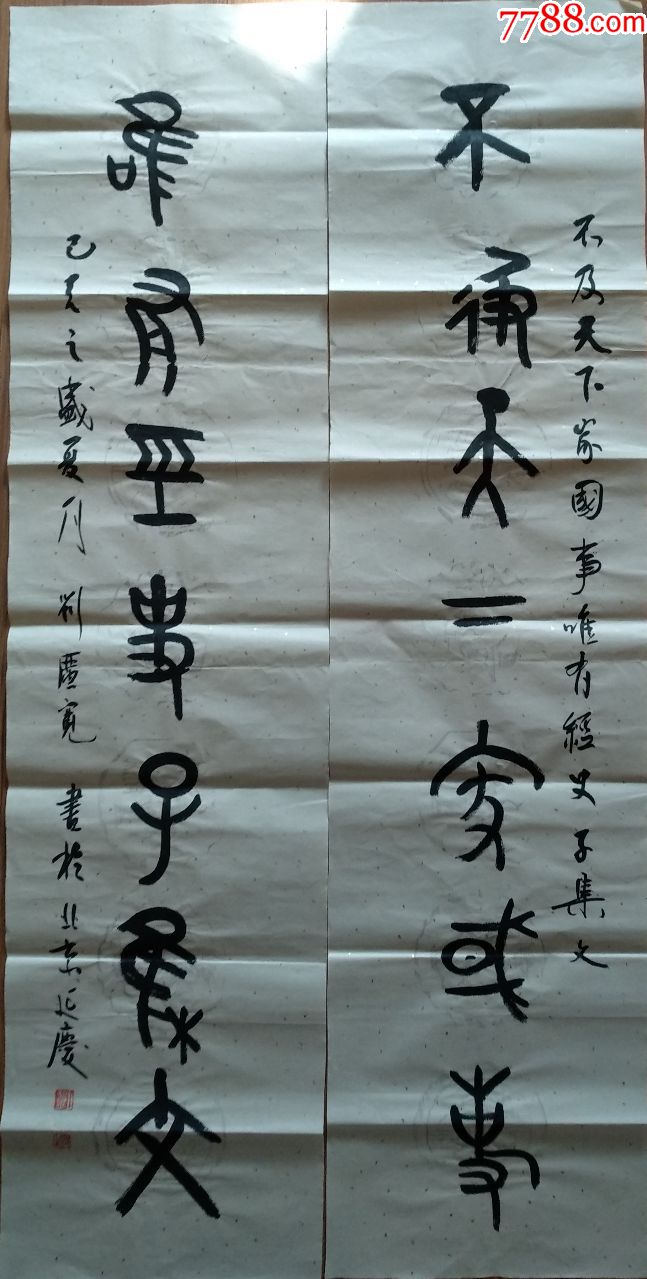 7788.com
不及天下家國事唯有經史子集文
不及天下家或事
唯有巠史子集文
己亥之盛夏月 劉匯寬 書於北京延慶